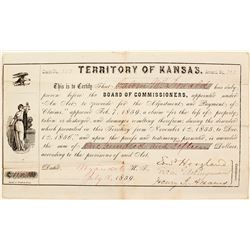 TERRITORY OF KANSAS.
This is to Certify That has duly
proven before the BOARD OF COMMISSIONERS, appointed under
"An Act to provide for the Adjustment and Payment of
Claims," approved Feb. 7, 1859, a claim for the loss of property,
taken or destroyed, and damages resulting therefrom during the disorders
which prevailed in this Territory from November 1, 1855, to Dec.
1, 1856, and was, by said Board, awarded therefor the
sum of One hundred and fifteen Dollars,
according to the provisions of said Act.
Dated, Wyandott K. T.
July 1859.
Henry J. Adams